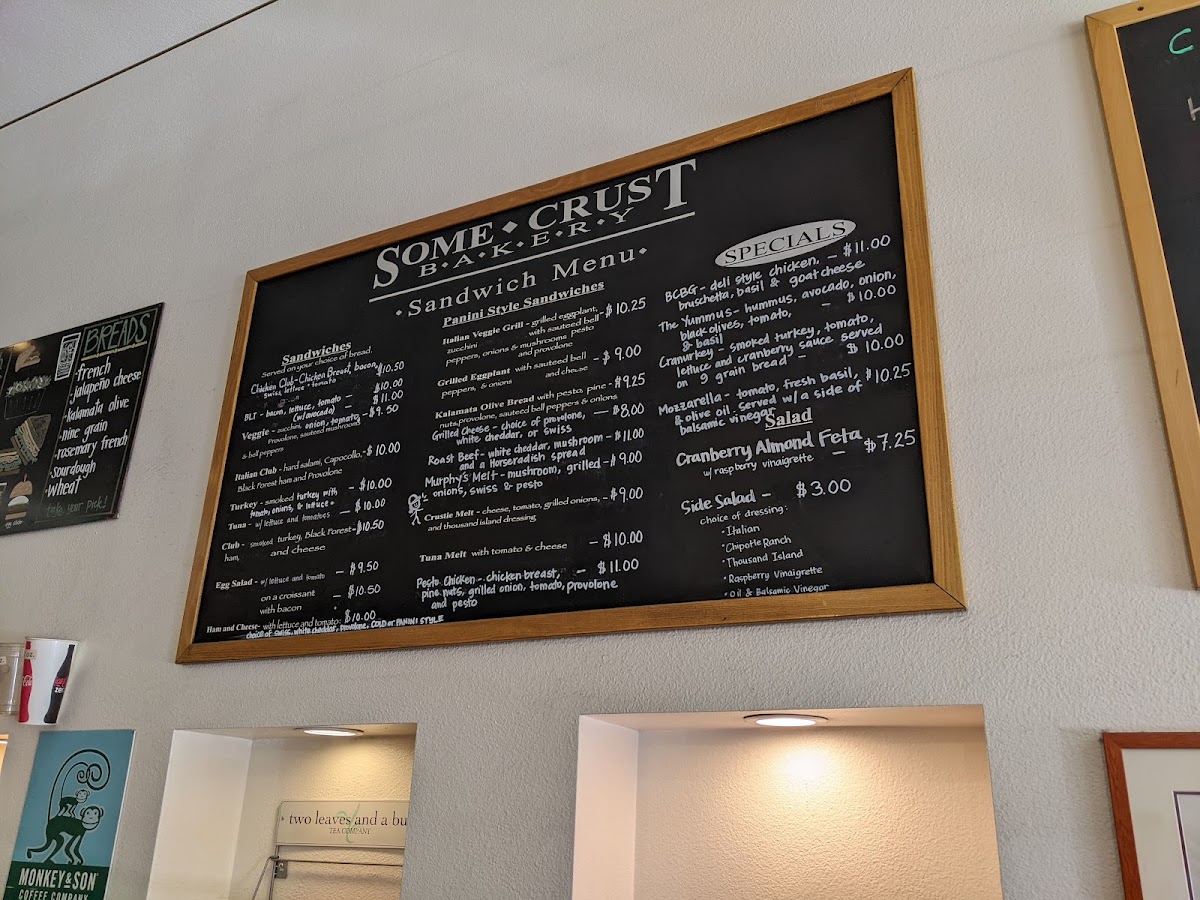 SOME • CRUST
B•A•K•E•R•Y
•Sandwich Menu•
Sandwiches
Served on your choice of bread.
Chicken Club - Chicken Breast, bacon, $10.50
swiss, lettuce + tomato
BLT - bacon, lettuce, tomato - $10.00
(w/avocado) - $11.00
Veggie - zucchini, onion, tomato, - $9.50
Provolone, sauteed mushrooms
& bell peppers
Italian Club - hard salami, Capocollo, - $10.00
Black Forest ham and Provolone
Turkey - smoked turkey with - $10.00
tomato, onions, & lettuce
Tuna - w/ lettuce and tomatoes - $10.00
Club - smoked turkey, Black Forest - $10.50
ham, and cheese
Egg Salad - w/ lettuce and tomato - $9.50
on a croissant - $10.50
with bacon
Ham and Cheese - with lettuce and tomato: $10.00
choice of swiss, white cheddar, provolone, COLD or PANINI STYLE
Panini Style Sandwiches
Italian Veggie Grill - grilled eggplant, - $10.25
zucchini with sauteed bell
peppers, onions & mushrooms pesto
and provolone
Grilled Eggplant with sauteed bell - $9.00
peppers, & onions and cheese
Kalamata Olive Bread with pesto, pine - $9.25
nuts, provolone, sauteed bell peppers & onions
Grilled Cheese - choice of provolone, - $8.00
white cheddar, or swiss
Roast Beef - white cheddar, mushroom - $11.00
and a Horseradish spread
Murphy's Melt - mushroom, grilled - $9.00
onions, swiss & pesto
Crustie Melt - cheese, tomato, grilled onions, - $9.00
and thousand island dressing
Tuna Melt with tomato & cheese - $10.00
Pesto Chicken - chicken breast, - $11.00
pine nuts, grilled onion, tomato, provolone
and pesto
SPECIALS
BCBG - deli style chicken, - $11.00
bruschetta, basil & goat cheese
The Yummus - hummus, avocado, onion,
black olives, tomato, - $10.00
& basil
Cranurkey - smoked turkey, tomato,
lettuce and cranberry sauce served
on 9 grain bread - $10.00
Mozzarella - tomato, fresh basil, $10.25
& olive oil. served w/a side of
balsamic vinegar
Salad
Cranberry Almond Feta
w/ raspberry vinaigrette - $7.25
Side Salad - $3.00
choice of dressing:
• Italian
• Chipotle Ranch
• Thousand Island
• Raspberry Vinaigrette
• Oil & Balsamic Vinegar
BREADS
•french
•jalapeño cheese
•kalamata olive
•nine grain
•rosemary french
•sourdough
•wheat
take your pick!
C
H
two leaves and a bu
TEA COMPANY
MONKEY & SON
COFFEE COMPANY